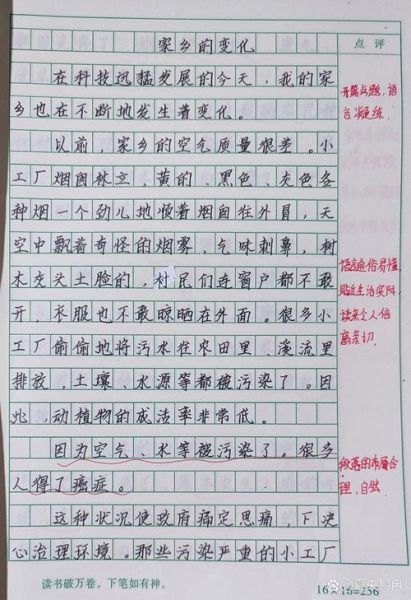 家乡的变化
点评
在科技迅猛发展的今天，我的家
乡也在不断地发生着变化。
开篇点题，语
言凝练.
以前，家乡的空气质量很差。小
工厂烟囱林立，黄的、黑色、灰色各
种烟一个劲儿地顺着烟囱往外冒，天
空中飘着奇怪的烟雾，气味刺鼻，树
木灰头土脸的，村民们连窗户都不敢
开，衣服也不敢晾晒在外面。很多小
工厂偷偷地将污水往农田里、溪流里
排放，土壤、水源等都被污染了。因
此，动植物的成活率非常低。
语言通俗易懂，
贴近生活实际，
读来令人倍
离亲切.
因为空气、水等被污染了。很多
人得了癌症。
段落的布局合
理，自然
这种状况使政府痛定思痛，下决
心治理环境。那些污染严重的小工厂
读书破万卷，下笔如有神。
16×16=256